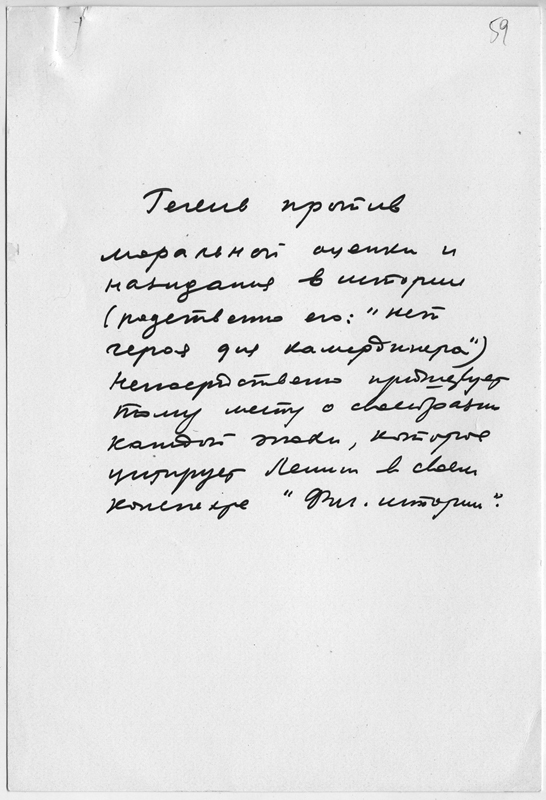 59
Гегель против
моральной оценки и
назидания в истории
(родственно его: "нет
героя для камердинера")
непосредственно предшествует
тому месту о своеобразии
каждой эпохи, которое
цитирует Ленин в своем
конспекте "Фил. истории".